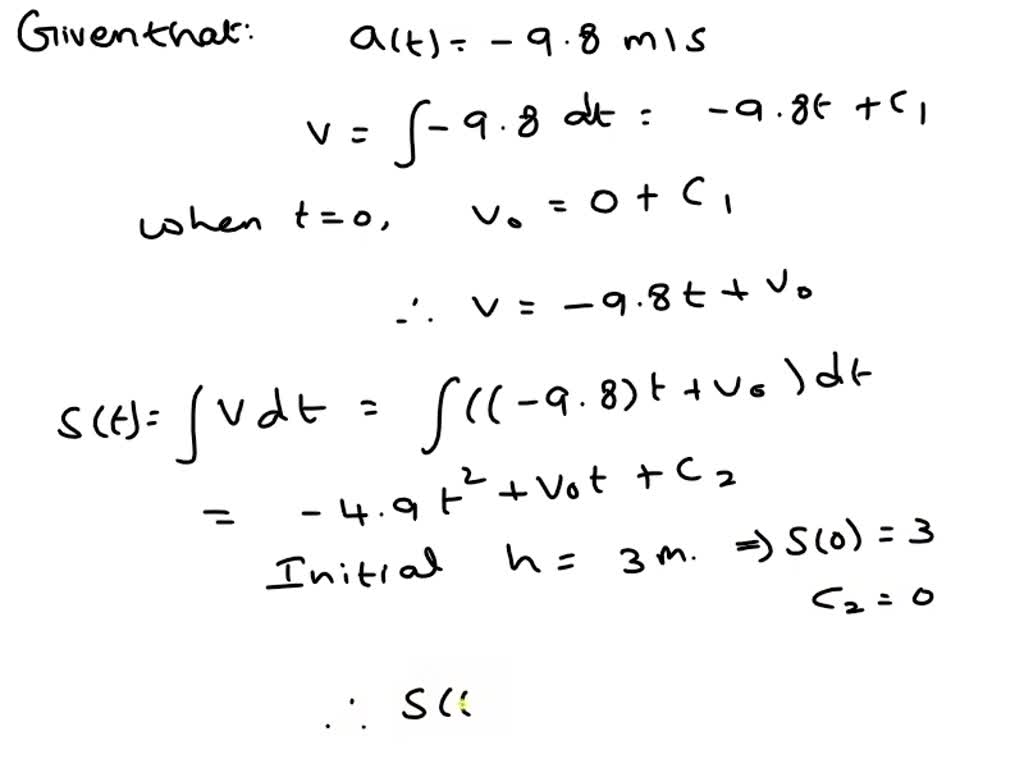 Given that: a(t) = -9.8 m/s
v = ∫-9.8 dt = -9.8t + C₁
when t=0, v₀ = 0 + C₁
∴ v = -9.8t + v₀
S(t) = ∫v dt = ∫((-9.8)t + v₀)dt
= -4.9t² + v₀t + C₂
Initial h = 3m. ⇒ S(0) = 3
C₂ = 0
∴ S((